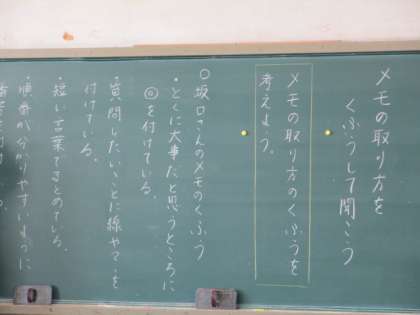 メモの取り方を
くふうして聞こう
メモの取り方のくふうを
考えよう。
○坂口さんのメモのくふう
・とくに大事だと思うところに
◎を付けている。
・質問したいことに線や?を
付けている。
・短い言葉でまとめている。
・順番が分かりやすいように